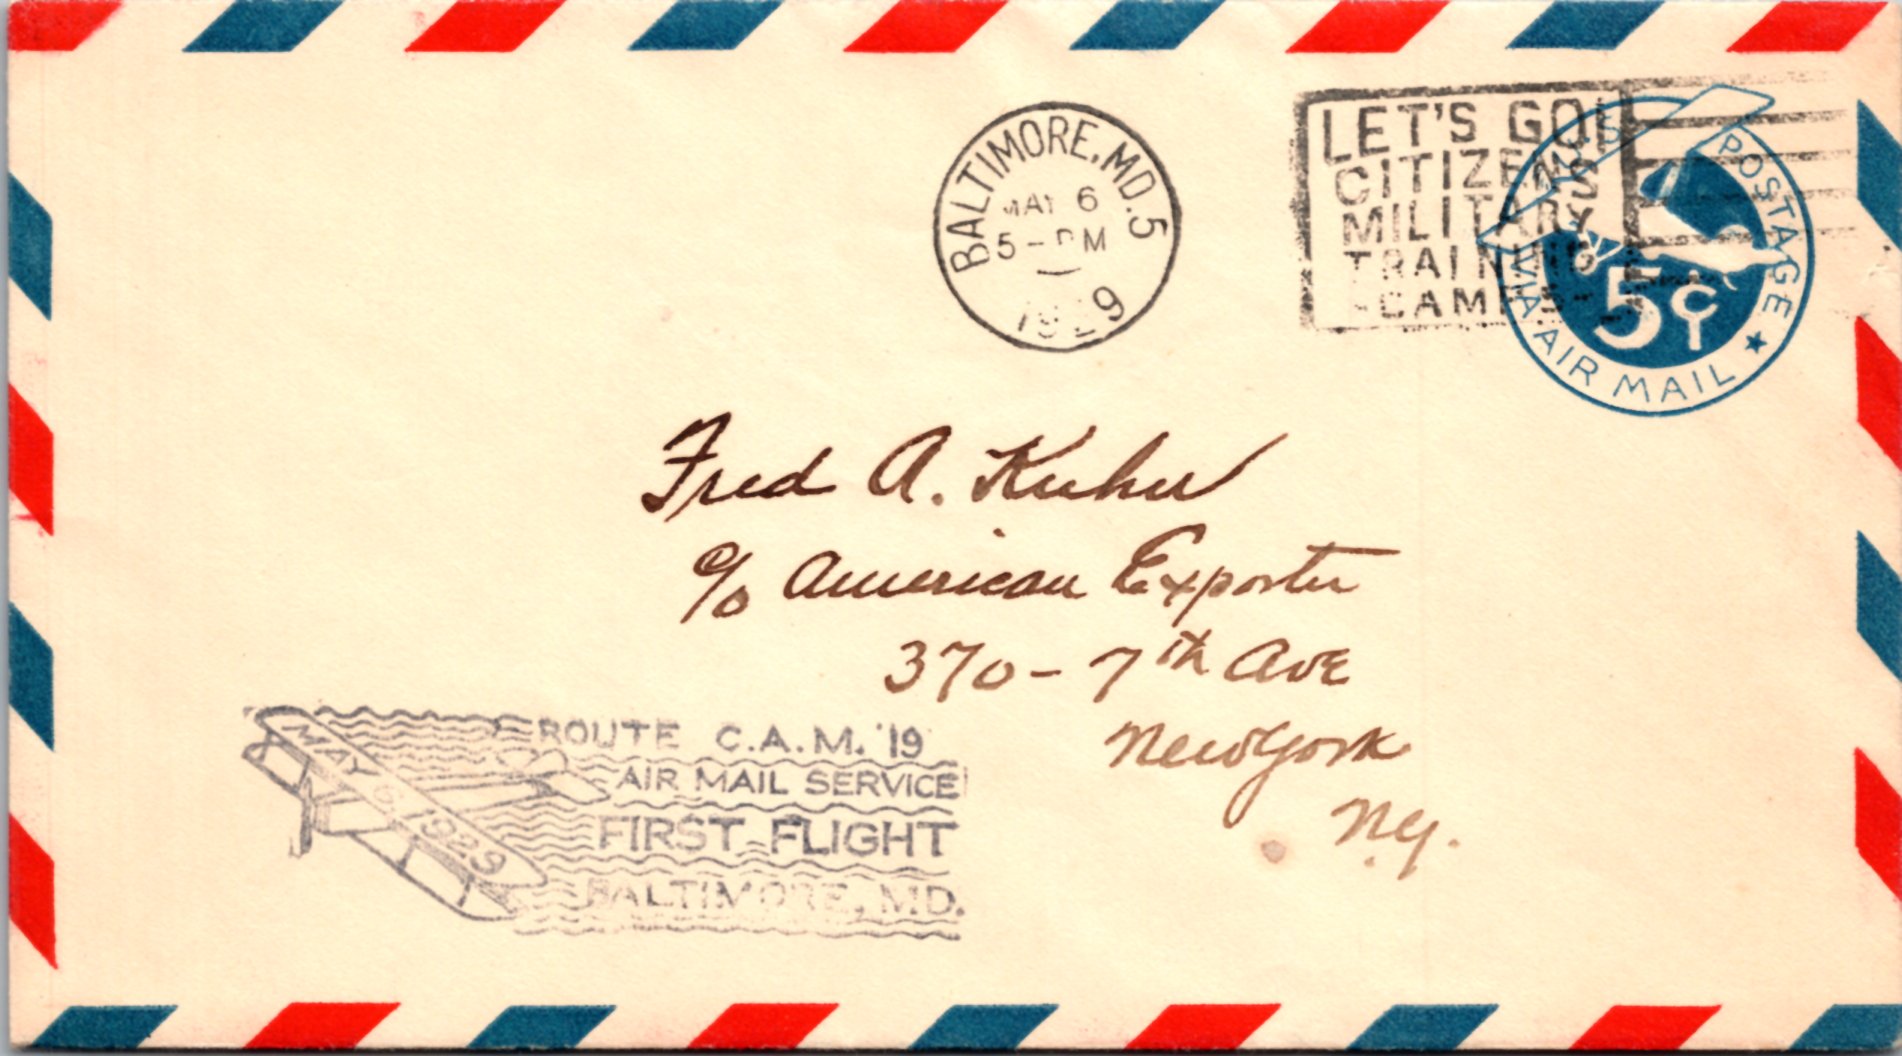 BALTIMORE, MD. 5
MAY 6
5-PM
1929
LET'S GO!
CITIZENS
MILITARY
TRAINING
CAMPS
U.S. POSTAGE
VIA AIR MAIL
5¢
Fred A. Kuhn
c/o American Exporter
370-7th Ave
New York
N.Y.
ROUTE C.A.M. '19
AIR MAIL SERVICE
FIRST FLIGHT
BALTIMORE, MD.
MAY 6 1929